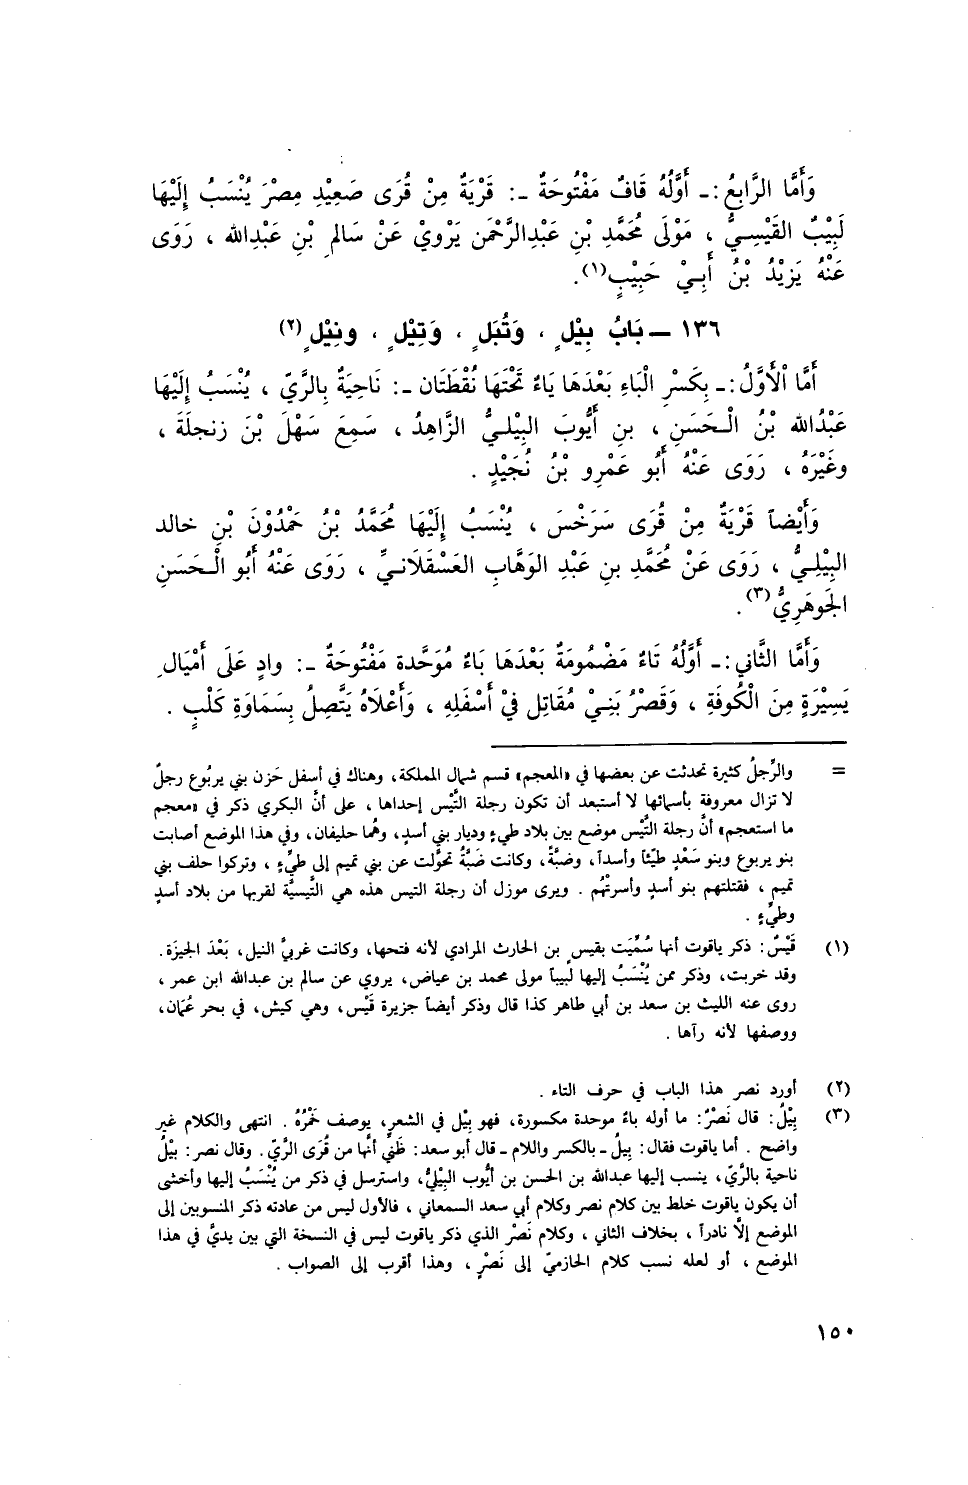 وَأَمَّا الرَّابِعُ :ـ أَوَّلُهُ قَافٌ مَفْتُوحَةٌ ـ: قَرْيَةٌ مِنْ قُرَى صَعِيْدِ مِصْرَ يُنْسَبُ إِلَيْهَا
لَبِيْبٌ القَيْسِيُّ ، مَوْلَى مُحَمَّدِ بْنِ عَبْدِالرَّحْمَنِ يَرْوِيْ عَنْ سَالِمِ بْنِ عَبْدِالله ، رَوَى
عَنْهُ يَزِيْدُ بْنُ أَبِيْ حَبِيْبٍ(١).
١٣٦ ــ بَابُ بِيْلٍ ، وَتُبَلٍ ، وَتِيْلٍ ، ونِيْلٍ(٢)
أَمَّا الْأَوَّلُ :ـ بِكَسْرِ الْبَاءِ بَعْدَهَا يَاءٌ تَحْتَهَا نُقْطَتَان ـ: نَاحِيَةٌ بِالرَّيّ ، يُنْسَبُ إِلَيْهَا
عَبْدُالله بْنُ الْحَسَنِ ، بنِ أَيُّوبَ البِيْلِيُّ الزَّاهِدُ ، سَمِعَ سَهْلَ بْنَ زنجلَةَ ،
وغَيْرَهُ ، رَوَى عَنْهُ أَبُو عَمْرِو بْنُ نُجَيْدٍ .
وَأَيْضاً قَرْيَةٌ مِنْ قُرَى سَرَخْسَ ، يُنْسَبُ إِلَيْهَا مُحَمَّدُ بْنُ حَمْدُوْنَ بْنِ خالد
البِيْلِيُّ ، رَوَى عَنْ مُحَمَّدِ بنِ عَبْدِ الوَهَّابِ العَسْقَلَانيِّ ، رَوَى عَنْهُ أَبُو الْحَسَنِ
الجَوهَرِيُّ(٣).
وَأَمَّا الثَّاني :ـ أَوَّلُهُ تَاءٌ مَضْمُومَةٌ بَعْدَهَا بَاءٌ مُوَحَّدة مَفْتُوحَةٌ ـ: وادٍ عَلَى أَمْيَالٍ
يَسِيْرَةٍ مِنَ الْكُوفَةِ ، وَقَصْرُ بَنِيْ مُقَاتِل فيْ أَسْفَلِهِ ، وَأَعْلَاهُ يَتَّصِلُ بِسَمَاوَةِ كَلْبٍ .
= والرِّجلُ كثيرة تحدثت عن بعضها في «المعجم» قسم شمال المملكة، وهناك في أسفل حَزن بني يربُوع رجلٌ
لا تزال معروفة بأسمائها لا أستبعد أن تكون رجلة التَّيْس إحداها ، على أنَّ البكري ذكر في «معجم
ما استعجم» أنَّ رجلة التَّيْس موضع بين بلاد طيءٍ وديار بني أسدٍ، وهُما حليفان، وفي هذا الموضع أصابت
بنو يربوع وبنو سَعْدٍ طيّئاً وأسداً، وضبَّةَ، وكانت ضَبَّةُ تحوَّلت عن بني تميم إلى طيِّءٍ ، وتركوا حلف بني
تميم ، فقتلتهم بنو أسدٍ وأسرتْهُم . ويرى موزل أن رجلة التيس هذه هي التَّيسيَّة لقربها من بلاد أسدٍ
وطيِّءٍ .
(١) قَيْسٌ : ذكر ياقوت أنها سُمِّيَت بقيسٍ بن الحارث المرادي لأنه فتحها، وكانت غربيَّ النيل، بَعْدَ الجيزَة.
وقد خربت، وذكر ممن يُنْسَبُ إليها لبيباً مولى محمد بن عياض، يروي عن سالم بن عبدالله ابن عمر ،
روى عنه الليث بن سعد بن أبي طاهر كذا قال وذكر أيضاً جزيرة قَيْس، وهي كيش، في بحر عُمَان،
ووصفها لأنه رآها .
(٢) أورد نصر هذا الباب في حرف التاء .
(٣) بِيْلُ: قال نَصْرٌ: ما أوله باءٌ موحدة مكسورة، فهو بِيْل في الشعر، يوصف خَمْرُهُ . انتهى والكلام غير
واضح . أما ياقوت فقال: بِيلُ ـ بالكسر واللام ـ قال أبو سعد: ظَنِّي أنَّها من قُرَى الرَّيّ. وقال نصر: بِيْلُ
ناحية بالرَّيّ، ينسب إليها عبدالله بن الحسن بن أيُّوب البِيْليُّ، واسترسل في ذكر من يُنْسَبُ إليها وأخشى
أن يكون ياقوت خلط بين كلام نصر وكلام أبي سعد السمعاني ، فالأول ليس من عادته ذكر المنسوبين إلى
الموضع إلَّا نادراً ، بخلاف الثاني ، وكلام نَصْرٍ الذي ذكر ياقوت ليس في النسخة التي بين يديَّ في هذا
الموضع ، أو لعله نسب كلام الحازميّ إلى نَصْرٍ ، وهذا أقرب إلى الصواب .
١٥٠